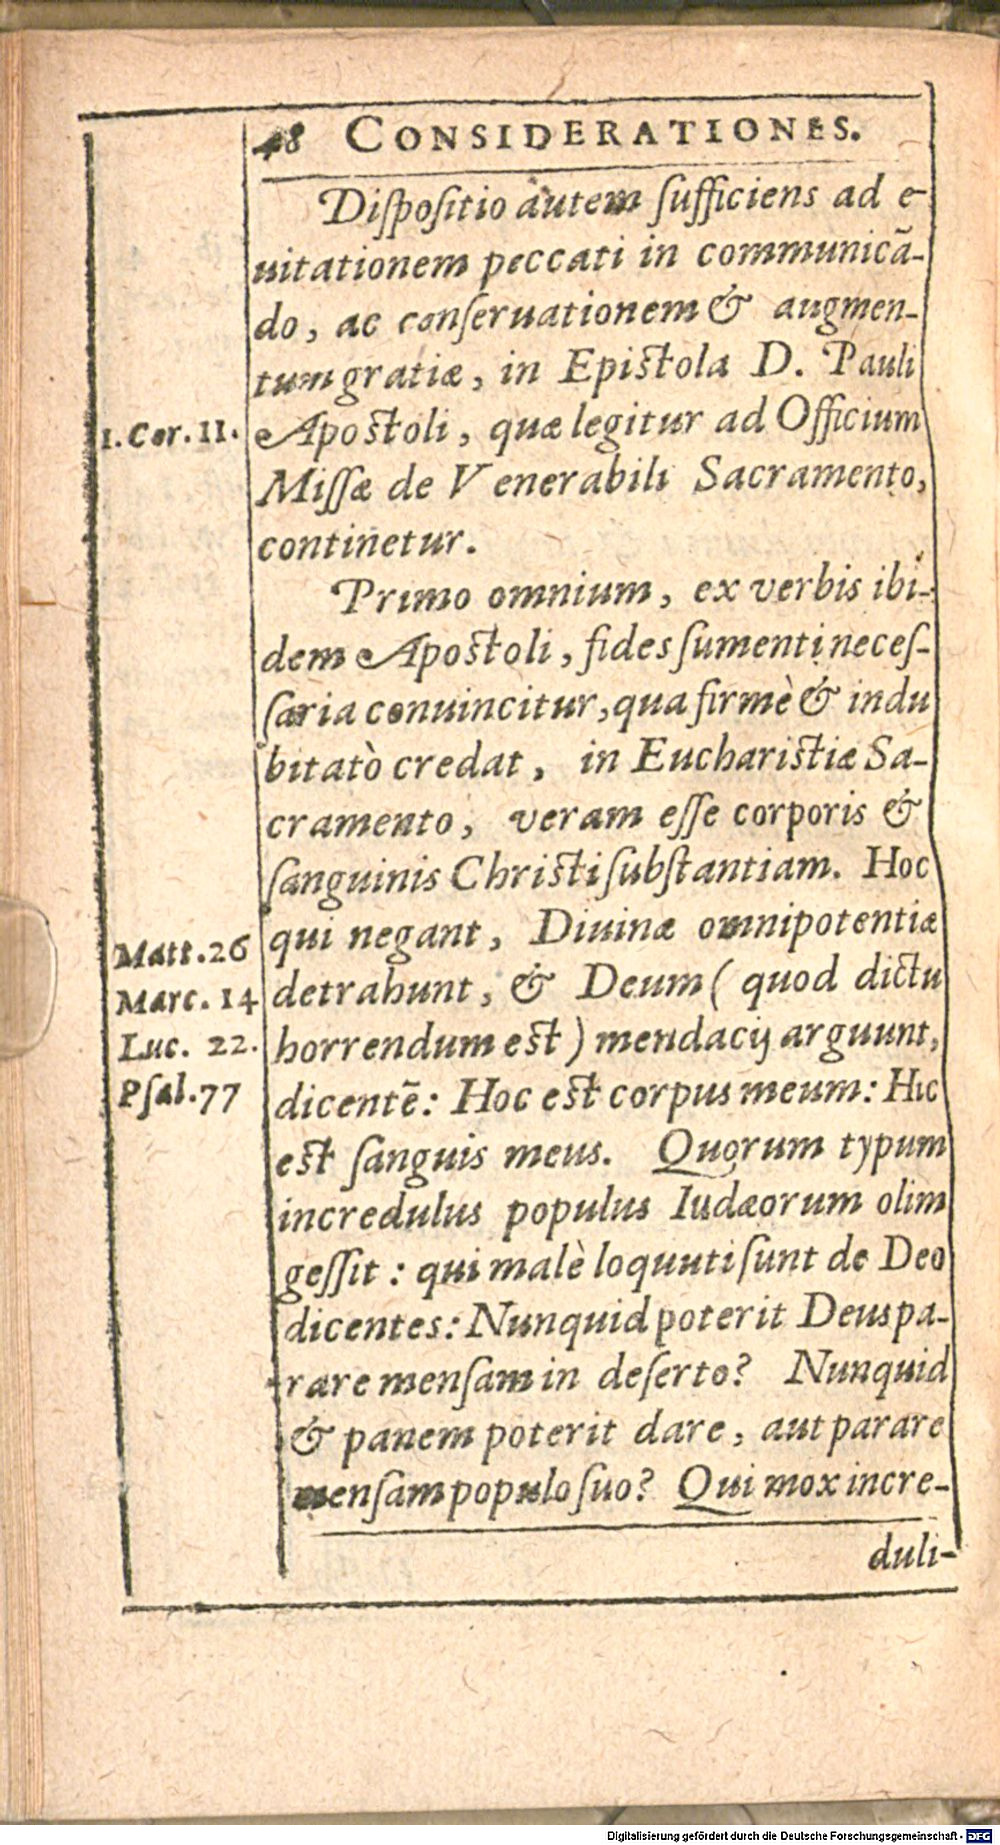 48 CONSIDERATIONES.
Diſpoſitio autem ſufficiens ad e-
uitationem peccati in communicã-
do, ac conſeruationem & augmen-
tum gratiæ, in Epiſtola D. Pauli
1. Cor. 11.
Apoſtoli, quæ legitur ad Officium
Miſſæ de Venerabili Sacramento,
continetur.
Primo omnium, ex verbis ibi-
dem Apoſtoli, fides ſumenti neceſ-
ſaria conuincitur, qua firmè & indu
bitatò credat, in Euchariſtiæ Sa-
cramento, veram eſſe corporis &
ſanguinis Chriſti ſubſtantiam. Hoc
qui negant, Diuinæ omnipotentiæ
Matt. 26
Marc. 14
Luc. 22.
Pſal. 77
detrahunt, & Deum ( quod dictu
horrendum eſt ) mendacij arguunt,
dicentẽ: Hoc eſt corpus meum: Hic
eſt ſanguis meus. Quorum typum
incredulus populus Iudæorum olim
geſſit: qui malè loquuti ſunt de Deo
dicentes: Nunquid poterit Deus pa-
rare menſam in deſerto? Nunquid
& panem poterit dare, aut parare
menſam populo ſuo? Qui mox incre-
duli-
Digitalisierung gefördert durch die Deutsche Forschungsgemeinschaft - DFG